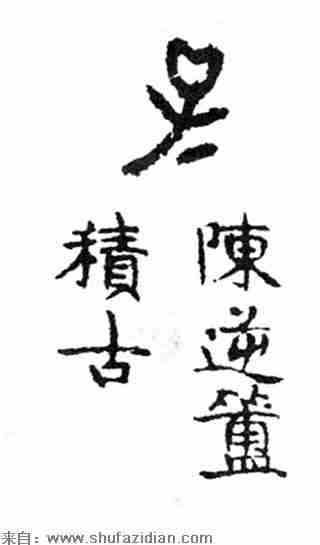 陳逆簠
積古
来自：www.shufazidian.com